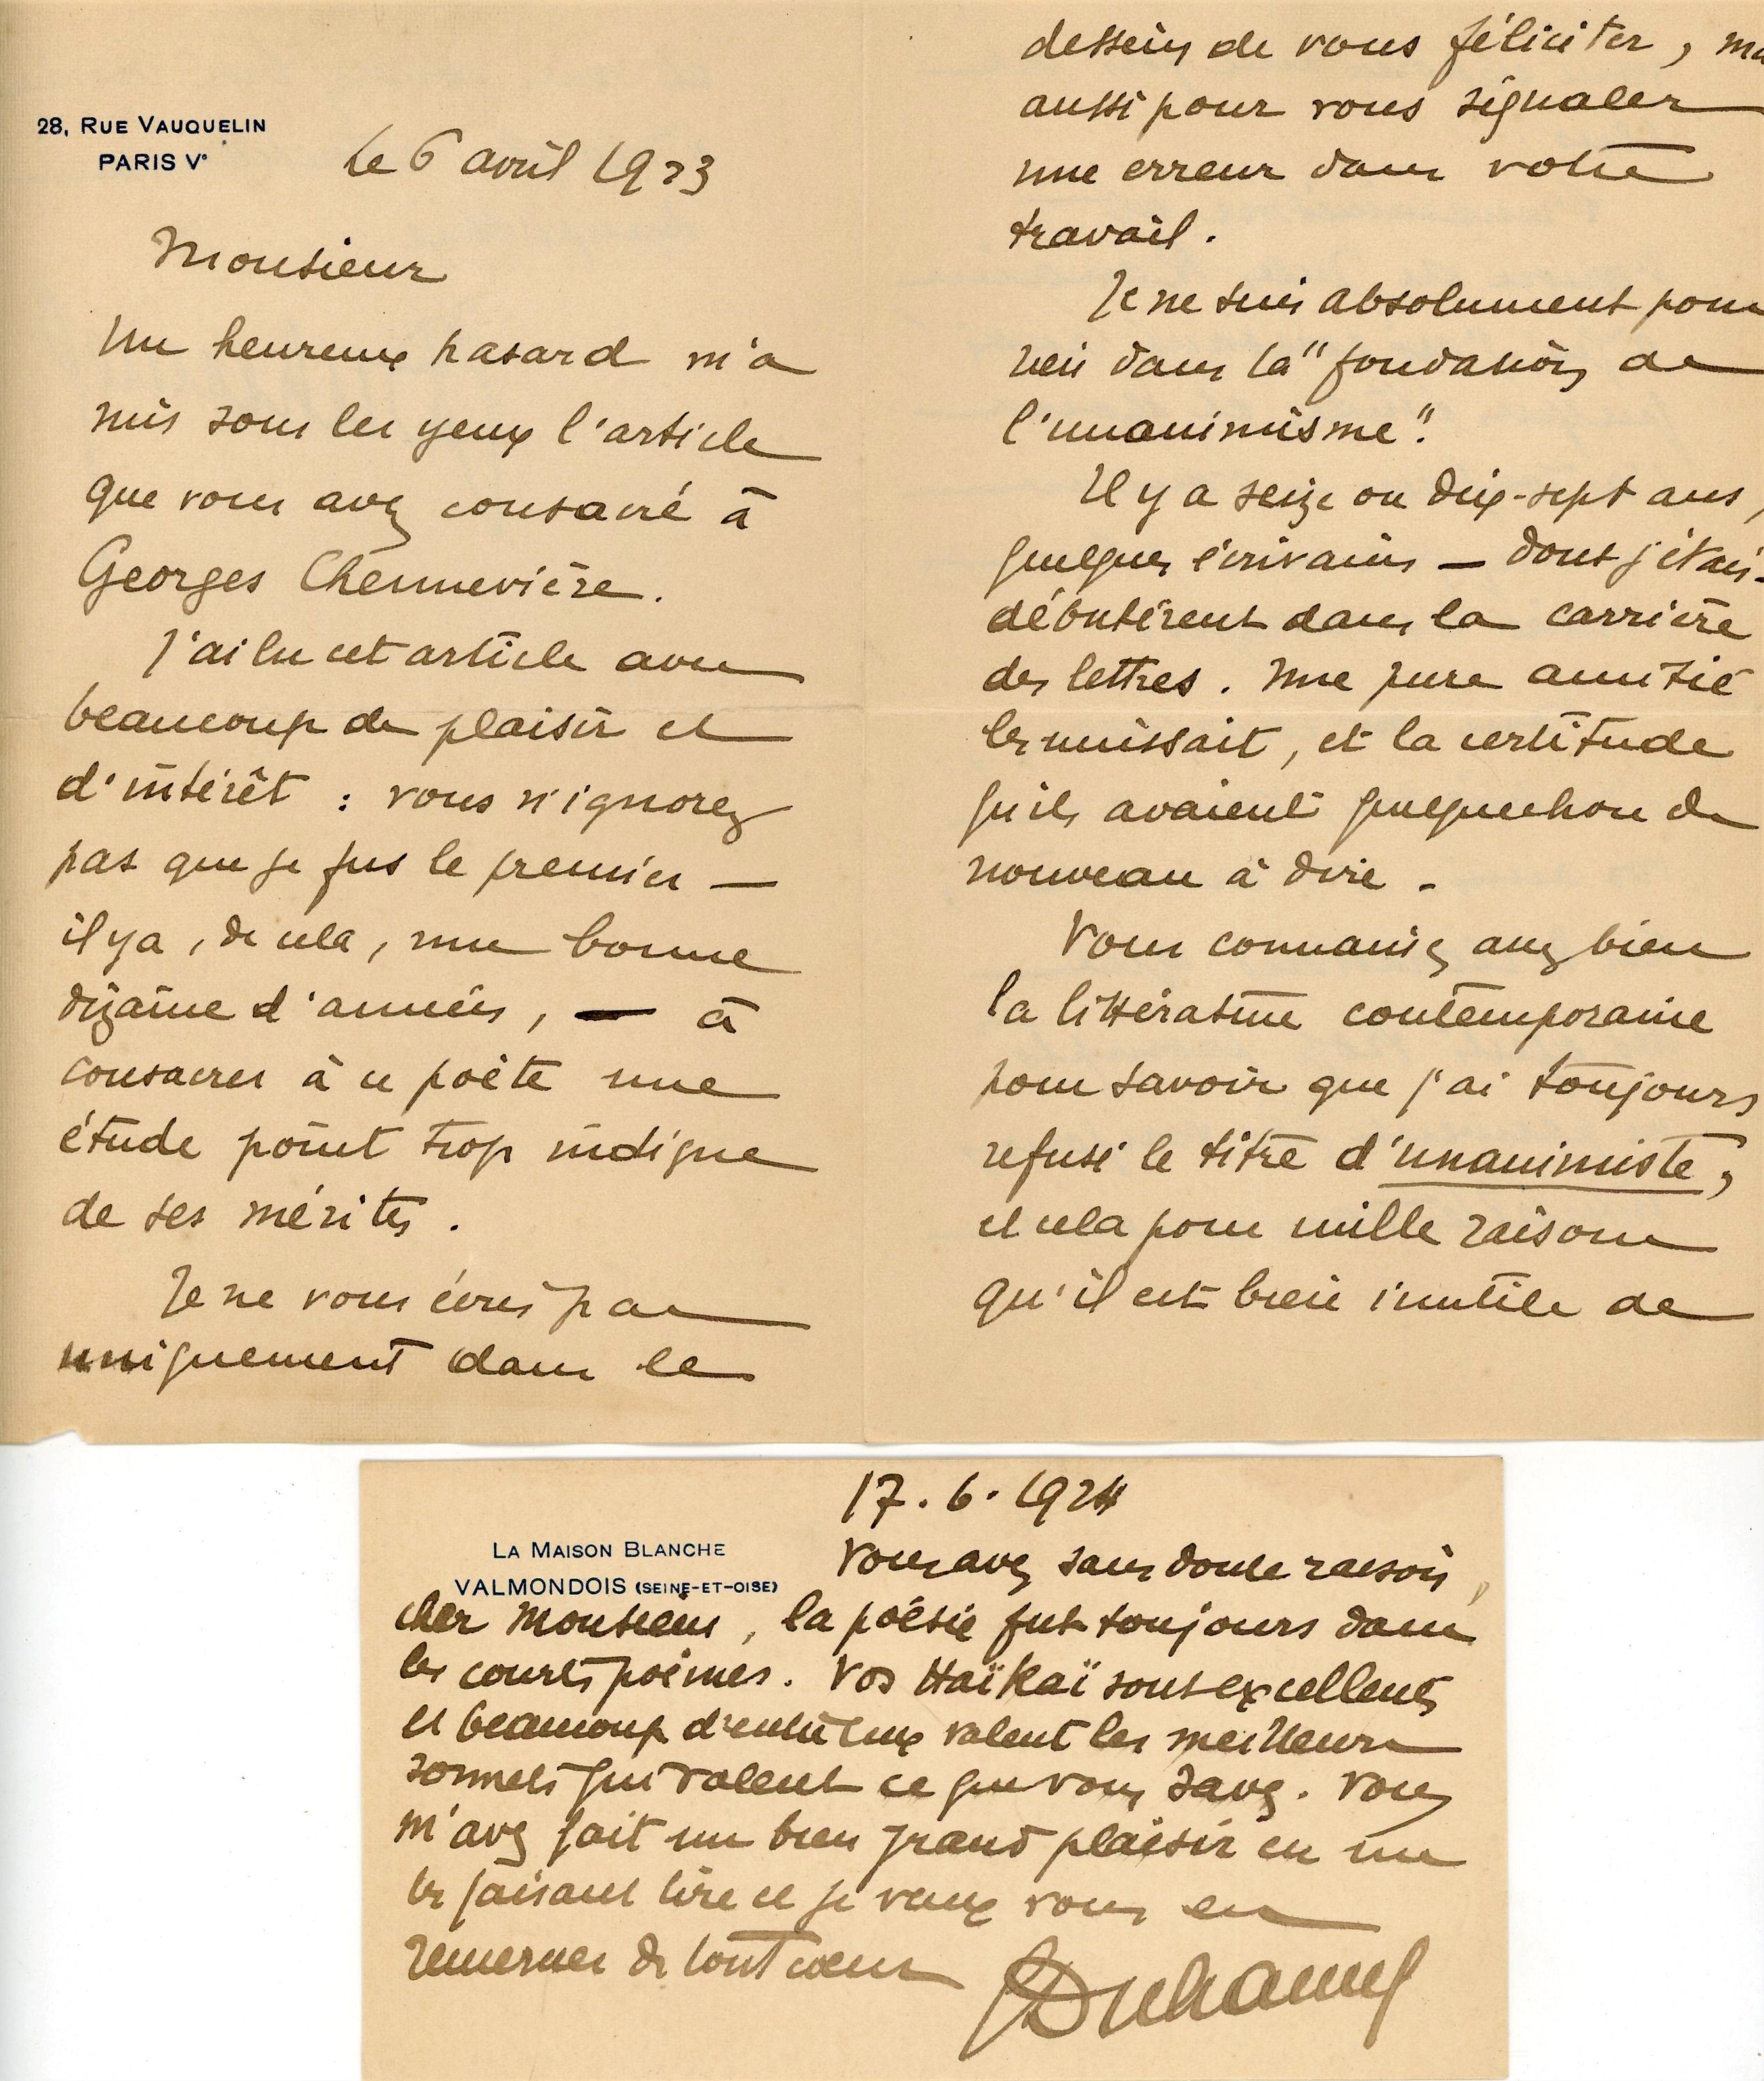 28, RUE VAUQUELIN
PARIS Vᵉ
Le 6 avril 1923
Monsieur
Un heureux hasard m'a
mis sous les yeux l'article
que vous avez consacré à
Georges Chennevière.
J'ai lu cet article avec
beaucoup de plaisir et
d'intérêt : vous n'ignorez
pas que je fus le premier —
il y a, de cela, une bonne
dizaine d'années, — à
consacrer à ce poète une
étude point trop indigne
de ses mérites.
Je ne vous écris pas
uniquement dans le
dessein de vous féliciter, ma
aussi pour vous signaler
une erreur dans votre
travail.
Je ne suis absolument pour
rien dans la "fondation de
l'unanimisme".
Il y a seize ou dix-sept ans,
quelques écrivains — dont j'étais -
débutèrent dans la carrière
des lettres. Une pure amitié
les unissait, et la certitude
qu'ils avaient quelque chose de
nouveau à dire.
Vous connaissez assez bien
la littérature contemporaine
pour savoir que j'ai toujours
refusé le titre d'unanimiste,
et cela pour mille raisons
qu'il est bien inutile de
17.6.1924
LA MAISON BLANCHE
VALMONDOIS (SEINE-ET-OISE)
Vous avez sans doute raison,
cher Monsieur, la poésie fut toujours dans
les courts poèmes. Vos Haïkaï sont excellents
et beaucoup d'entre eux valent les meilleurs
sonnets qui valent ce que vous savez. Vous
m'avez fait un bien grand plaisir en me
les faisant lire et je veux vous en
remercier de tout cœur
GDuhamel